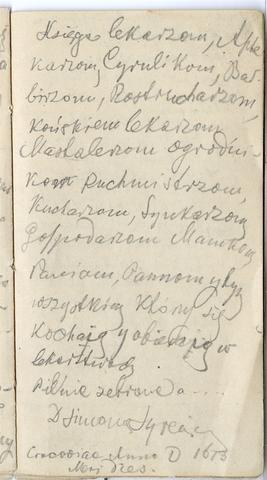 Księga lekarzom, Apte
karzom, Cyrulikom, Bal-
birzom, Rostrucharzom,
końskiem lekarzom
Mastalerzom ogrodni-
kom Kuchmistrzom,
Kucharzom, Synkarzom
Gospodarzom Mamkom
Paniom, Pannom y tym
wszystkim Którzy się
kochaią y obieraią w
lekarstwach
pilnie zebrana ....
D Simona Syreń
Cracoviae Anno D 1613